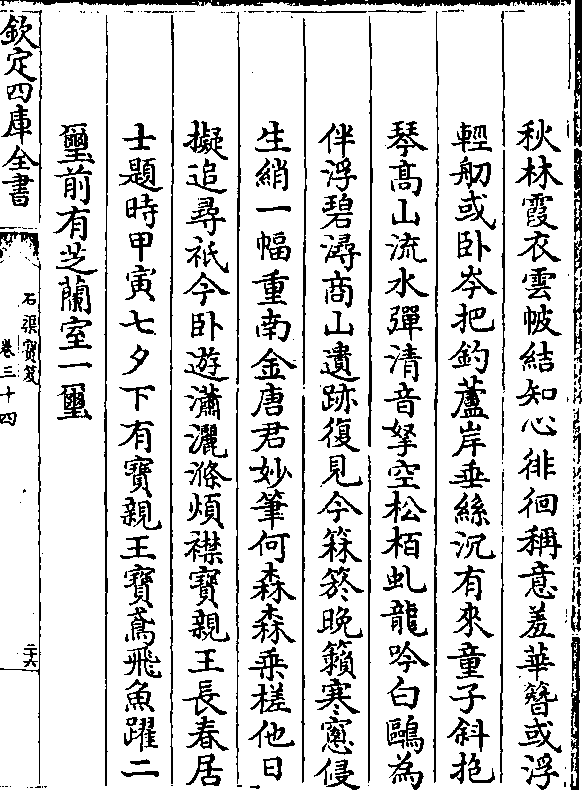 秋林霞衣雲帔結知心徘徊稱意羞華簪或浮
輕舠或卧岑把釣蘆岸垂絲沉有來童子斜抱
琴髙山流水彈清音拏空松栢虬龍吟白鷗為
伴浮碧潯商山遺跡復見今箖箊晩籟寒窻侵
生綃一幅重南金唐君妙筆何森森乗槎他日
擬追尋祇今卧遊瀟灑滌煩襟寶親王長春居
士題時甲寅七夕下有寶親王寶鳶飛魚躍二
璽前有芝蘭室一璽
欽定四庫全書
石渠寶笈
卷三十四
二十六